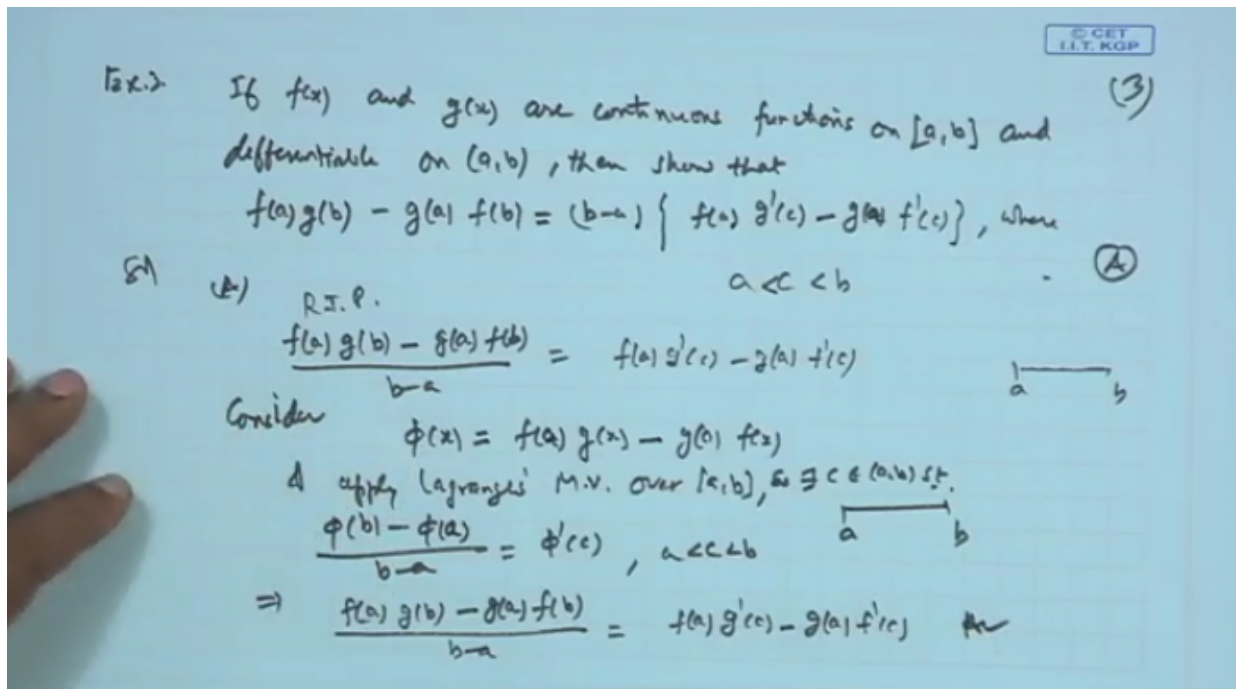 © CET
I.I.T. KGP
(3)
Ex.2. If f(x) and g(x) are continuous functions on [a,b] and
differentiable on (a,b), then show that
f(a) g(b) - g(a) f(b) = (b-a) { f(a) g'(c) - g(a) f'(c) }, where
a < c < b
(A)
Sol
R.I.P.
f(a) g(b) - g(a) f(b) / b-a = f(a) g'(c) - g(a) f'(c)
a b
Consider
φ(x) = f(a) g(x) - g(a) f(x)
& apply Lagrange's M.V. over [a,b], so ∃ c ∈ (a,b) s.t.
φ(b) - φ(a) / b-a = φ'(c), a<c<b
a b
⇒ f(a) g(b) - g(a) f(b) / b-a = f(a) g'(c) - g(a) f'(c)